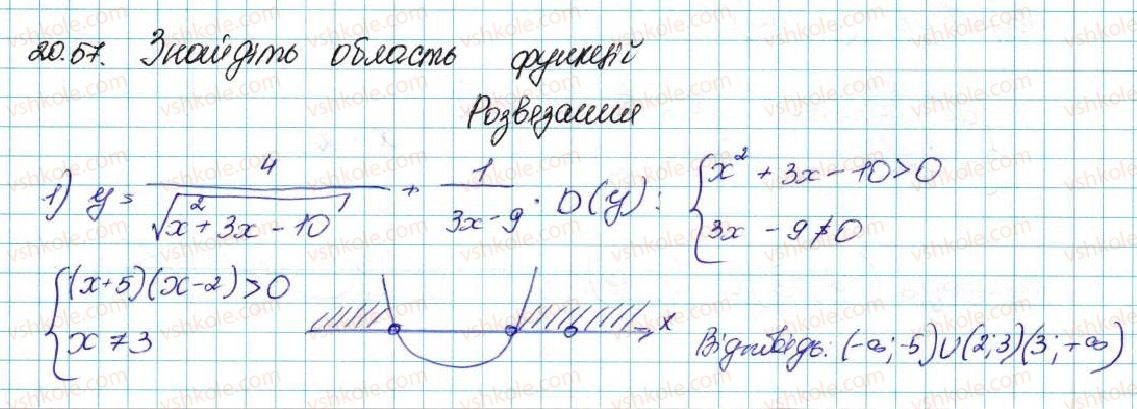 20.57. Знайдіть область функцій
Розвезання
1) y = 4/√(x² + 3x - 10) + 1/(3x - 9). D(y): { x² + 3x - 10 > 0
3x - 9 ≠ 0
{ (x+5)(x-2) > 0
x ≠ 3
x
Відповідь: (-∞; -5)∪(2; 3)(3; +∞)
vshkole.com